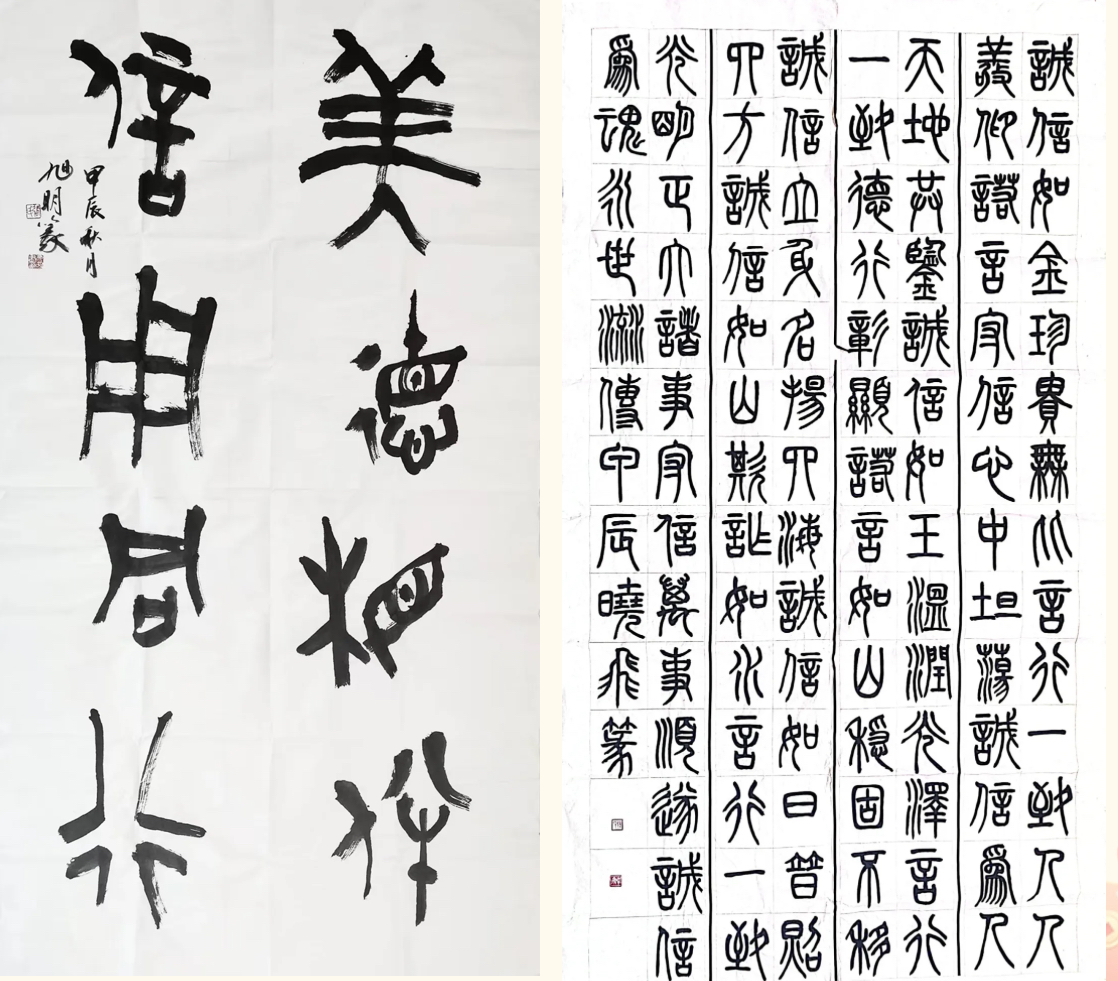 美德相伴
信用同行
甲辰秋月
旭明篆
誠信如金珍貴無比言行一致人人
羨仰諾言守信心中坦蕩誠信爲人
天地共鑒誠信如玉溫潤光澤言行
一致德行彰顯諾言如山穩固不移
誠信立身名揚四海誠信如日普照
四方誠信如山欺詐如水言行一致
光明正大諸事守信萬事順遂誠信
爲魂永世流傳甲辰曉飛篆